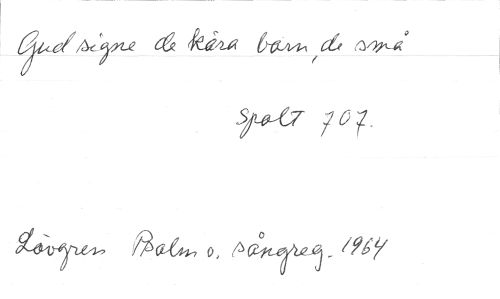 Gud signe de kära barn, de små
spalt 707.
Lövgren Psalm o. sångreg. 1964